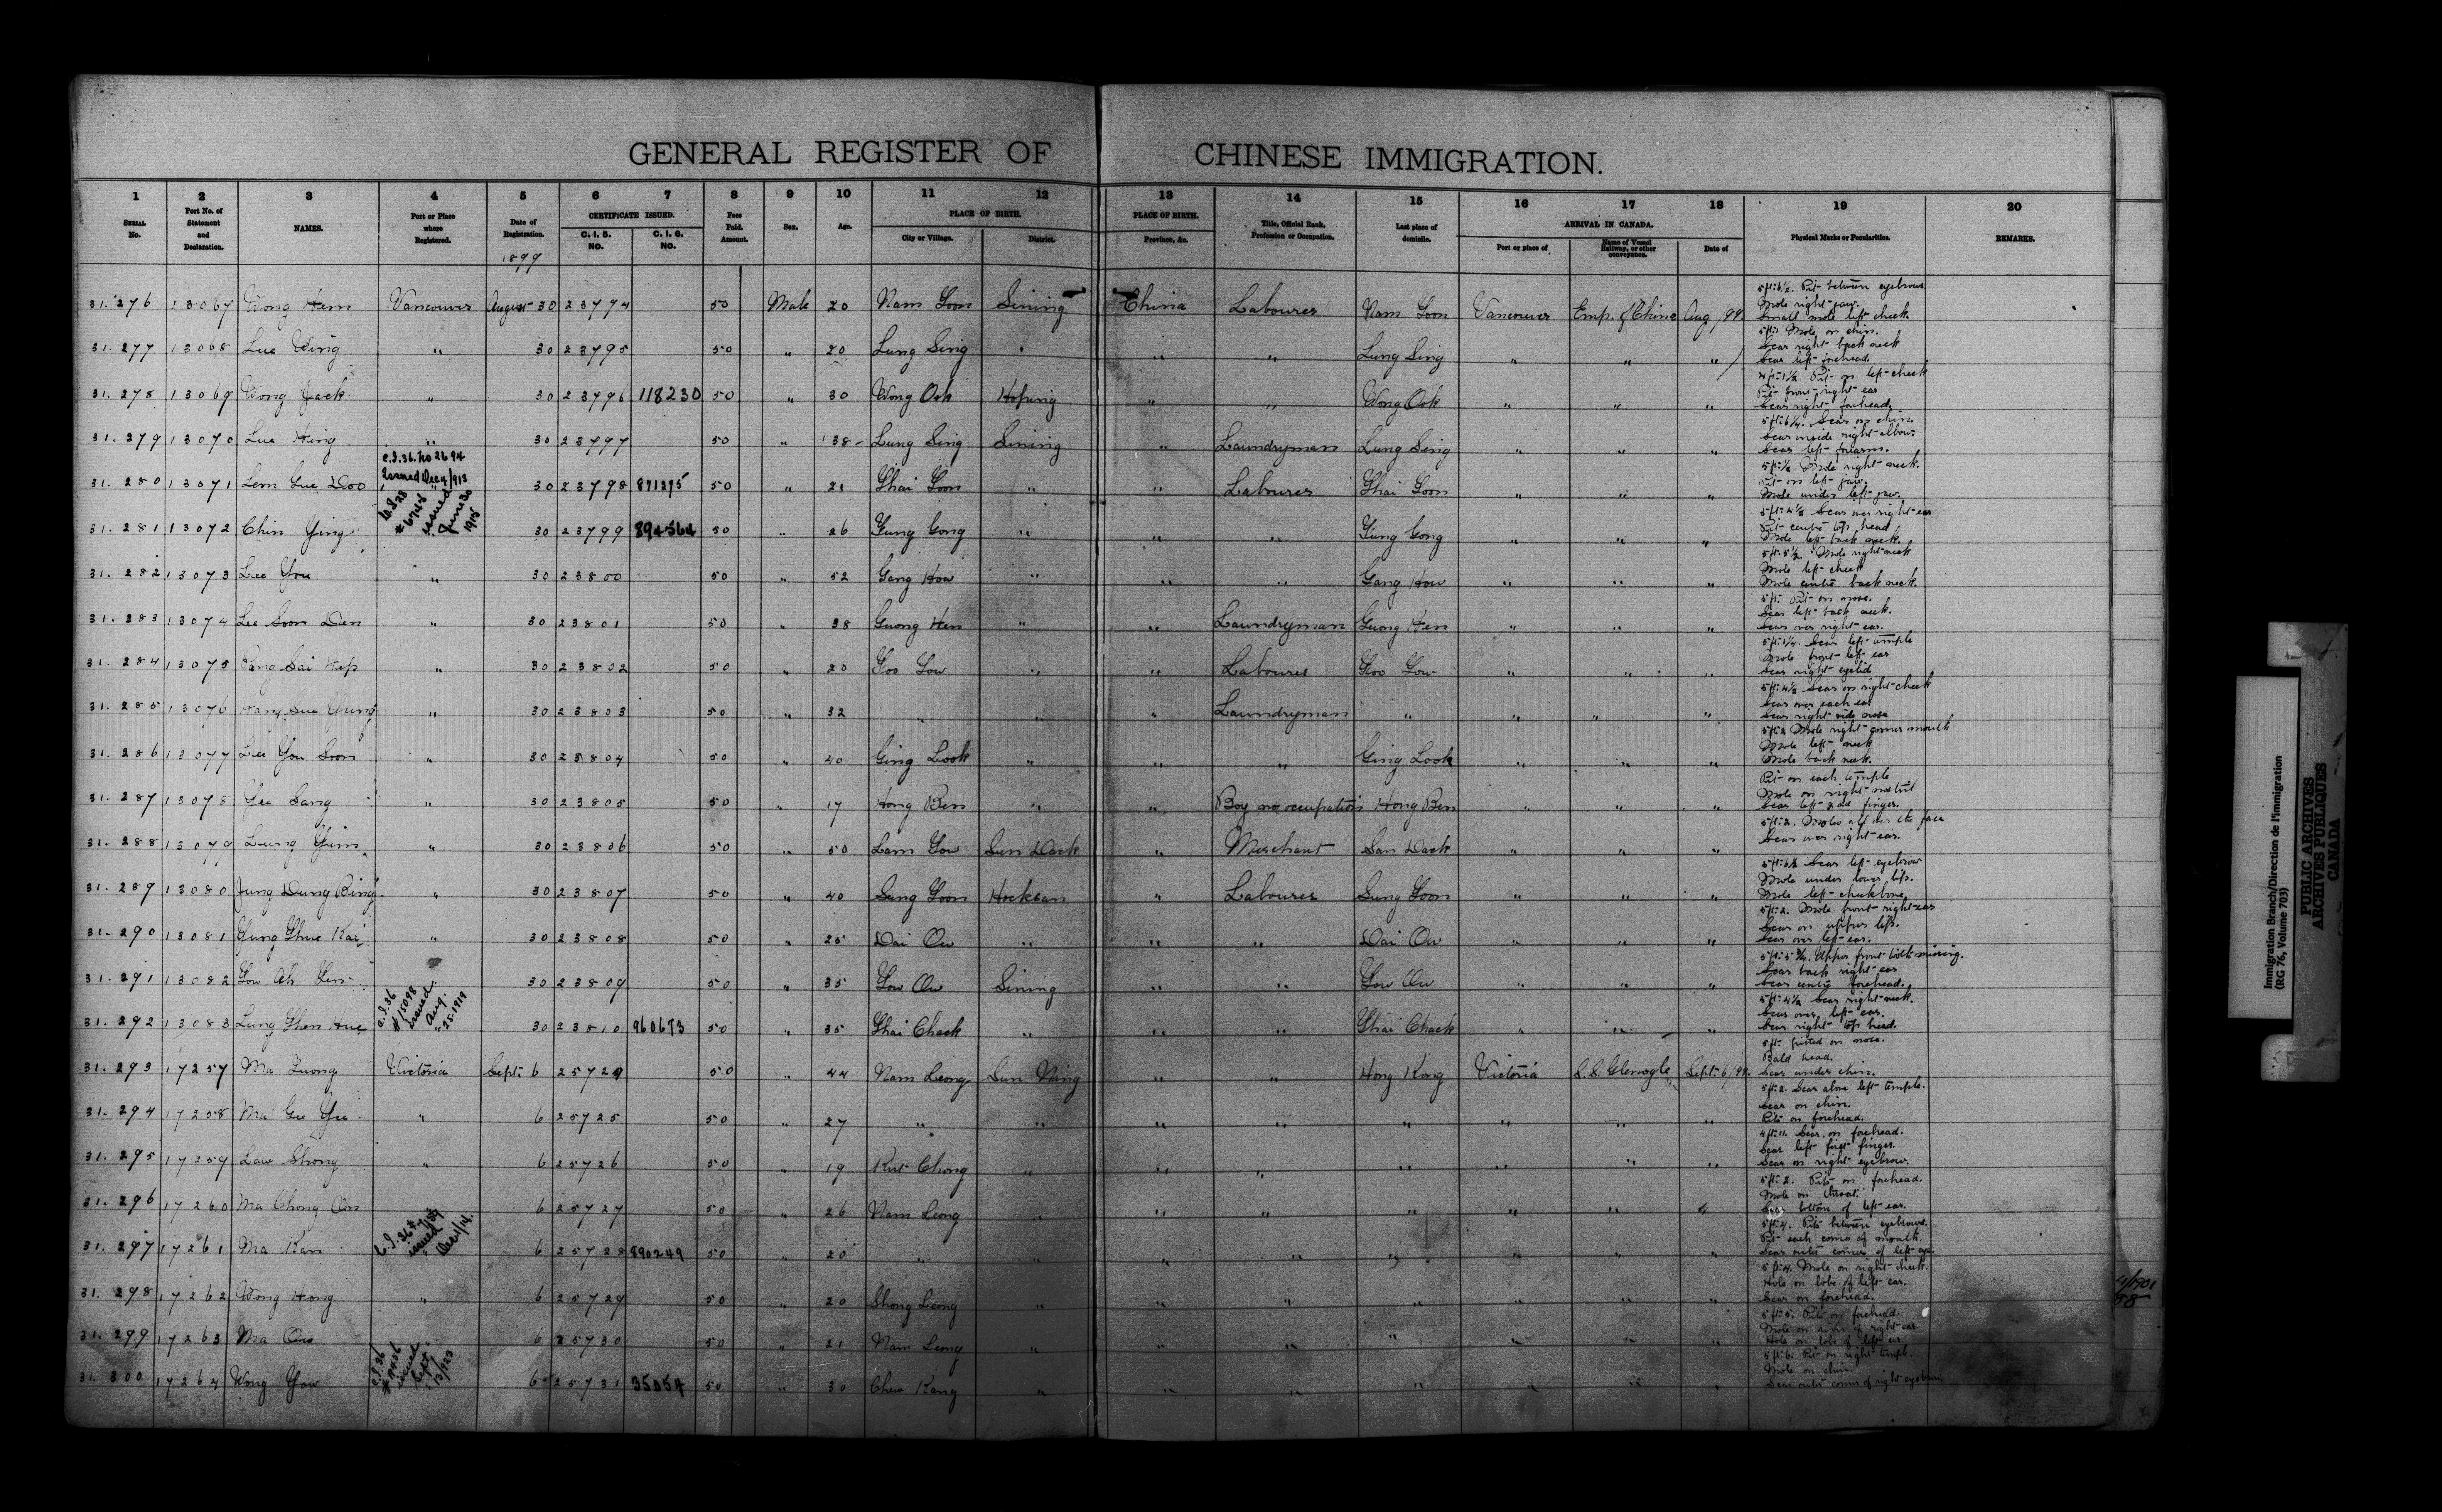 GENERAL REGISTER OF CHINESE IMMIGRATION.
1 2 3 4 5 6 7 8 9 10 11 12 13 14 15 16 17 18 19 20
SERIAL No. Port No. of Statement and Declaration. NAMES. Port or Place where Registered. Date of Registration. CERTIFICATE ISSUED. C. I. 5. NO. C. I. 6. NO. Fees Paid. Amount. Sex. Age. PLACE OF BIRTH. City or Village. District. PLACE OF BIRTH. Province, &c. Title, Official Rank, Profession or Occupation. Last place of domicile. ARRIVAL IN CANADA. Port or place of Name of Vessel Railway, or other conveyance. Date of Physical Marks or Peculiarities. REMARKS.
1899
31.276 13067 Wong Hem Vancouver August 30 23794 50 Male 20 Nam Goon Sining China Labourer Nam Goon Vancouver Emp. of China Aug /99. 5ft:6½. Pit between eyebrows Mole right jaw. Small mole left cheek.
31.277 13068 Lue Wing " 30 23795 50 " 20 Lung Sing " " " Lung Sing " " " 5ft:1 Mole on chin. Scar right back neck Scar left forehead
31.278 13069 Wong Jack " 30 23796 118230 50 " 30 Wong Ook Hoping " " Wong Ook " " " Pit on left cheek Pit front right ear Scar right forehead.
31.279 13070 Lue Hing " 30 23797 50 " 38 Lung Sing Sining " Laundryman Lung Sing " " " 5ft:6¼. Scar on chin. Scar inside right elbow. Scar left forearm.
C.I.36. No 2694 Issued Dec 4/913
31.280 13071 Lem Gue Doo " 30 23798 871275 50 " 21 Shai Goon " " Labourer Shai Goon " " " Mole right neck. Pit on left jaw. Mole under left jaw.
C.I.28 #6748 issued June 30 1915
31.281 13072 Chin Ying 30 23799 894564 50 " 26 Gung Gong " " " Gung Gong " " " 5ft:4½ Scar over right ear Pit centre top head Mole left back neck.
31.282 13073 Lee You " 30 23800 50 " 52 Gang How " " " Gang How " " " 5ft:5½. Mole right neck Mole left cheek Mole centre back neck.
31.283 13074 Lee Soon Den " 30 23801 50 " 38 Guong Hen " " Laundryman Guong Hen " " " 5ft: Pit on nose. Scar left back neck. Scar over right ear.
31.284 13075 Sai Hep " 30 23802 50 " 20 Goo Gow " " Labourer Goo Gow " " " 5ft:1¼. Scar left temple Mole front left ear Scar right eyelid
31.285 13076 Sue Yung " 30 23803 50 " 32 " " " Laundryman " " " " 5ft:4½ Scar on right cheek Scar over each ear Scar right side nose
31.286 13077 Lee You Soon " 30 23804 50 " 40 Ging Look " " " Ging Look " " " 5ft:2 Mole right corner mouth Mole left neck Mole back neck.
31.287 13078 Yee Sang " 30 23805 50 " 17 Hong Ben " " Boy no occupation Hong Ben " " " Pit on each temple Mole on right nostril Scar left 2nd finger.
31.288 13079 Leung Yim " 30 23806 50 " 50 Lam Gow Sun Dack " Merchant San Dack " " " 5ft:2. Moles all over the face Scar over right ear.
31.289 13080 Jung Dung Bing " 30 23807 50 " 40 Sung Goon Hocksan " Labourer Sung Goon " " " Scar left eyebrow Mole under lower lip. Mole left cheekbone.
31.290 13081 Yung Shue Kai " 30 23808 50 " 25 Dai Ow " " " Dai Ow " " " 5ft:2. Mole front right ear Scar on upper lip. Scar over left ear.
31.291 13082 Gow Ah Yen " 30 23809 50 " 35 Gow Ow Sining " " Gow Ow " " " Upper front tooth missing. Scar back right ear Scar centre forehead.
C.I.36 #15098 Issued Aug. 25.1919
31.292 13083 Lung Shen Hue " 30 23810 960673 50 " 35 Shai Chack " " Shai Chack " " " 5ft:4½ Scar right neck. Scar over left ear. Scar right top head.
31.293 17257 Ma Luong Victoria Sept: 6 25724 50 " 44 Nam Leong Sun Ning " " Hong Kong Victoria S.S. Glenogle Sept: 6/99. 5ft: pitted on nose. Bald head. Scar under chin.
31.294 17258 Ma Gee Yu " 6 25725 50 " 27 " " " " " " " " 5ft:2. Scar above left temple. Scar on chin. Pits on forehead.
31.295 17259 Law Shong " 6 25726 50 " 19 Kut Chong " " " " " " " 4ft:11. Scar on forehead. Scar left first finger. Scar on right eyebrow.
31.296 17260 Ma Chong Oin 6 25727 50 " 26 Nam Leong " " " " " " " 5ft:2. Pits on forehead. Mole on throat. Scar bottom of left ear.
31.297 17261 Ma Kan " 6 25728 890249 50 " 20 " " " " " " " " 5ft:4. Pits between eyebrows. Pit each corner of mouth. Scar outer corner of left eye.
31.298 17262 Wong Hong " 6 25729 50 " 20 Shong Leong " " " " " " " 5ft:4. Mole on right cheek. Hole on lobe of left ear. Scar on forehead.
31.299 17263 Ma Ow 6 25730 50 " 21 Nam Leong " " " " " " " 5ft:5. Pits on forehead. Hole on lobe of left ear.
31.300 17264 Wong Yow 6 25731 35054 50 " 30 Chew Kang " " " " " " " 5ft:6. Pit on right temple. Mole on chin. Scar outer corner of right eyebrow
Immigration Branch/Direction de l'immigration
(RG 76, Volume 703)
PUBLIC ARCHIVES
ARCHIVES PUBLIQUES
CANADA